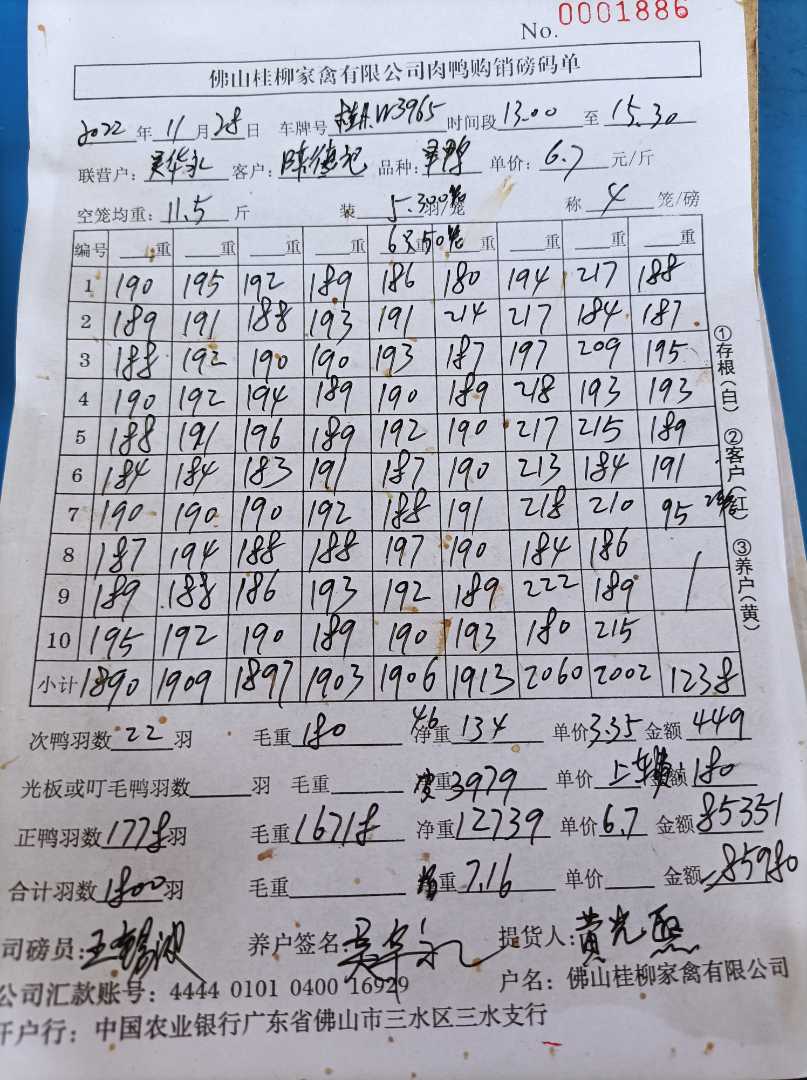 No. 0001886
佛山桂柳家禽有限公司肉鸭购销磅码单
2022 年 11 月 28 日 车牌号 W3965 时间段 13.00 至 15.30
联营户: 吴华永 客户: 陈德记 品种: 单价: 6.7 元/斤
空笼均重: 11.5 斤 装 5.300笼 羽/笼 称 4 笼/磅
6只50笼
编号 重 重 重 重 重 重 重 重 重
1 190 195 192 189 186 180 194 217 188
2 189 191 188 193 191 214 217 184 187
3 188 192 190 190 193 187 197 209 195
4 190 192 194 189 190 189 218 193 193
5 188 191 196 189 192 190 217 215 189
6 184 184 183 191 187 190 213 184 191
7 190 190 190 192 188 191 218 210 95 2笼
8 187 194 188 188 197 190 184 186
9 189 188 186 193 192 189 222 189
10 195 192 190 189 190 193 180 215
小计 1890 1909 1897 1903 1906 1913 2060 2002 1238
①存根(白) ②客户(红) ③养户(黄)
次鸭羽数 22 羽 毛重 180 46 净重 134 单价 3.35 金额 449
光板或叮毛鸭羽数 羽 毛重 重 3979 单价 上车费 金额 180
正鸭羽数 1778 羽 毛重 16718 净重 12739 单价 6.7 金额 85351
合计羽数 1800 羽 毛重 重 7.16 单价 金额 85980
司磅员: 养户签名: 吴华永 提货人: 黄光
公司汇款账号: 4444 0101 0400 16929 户名: 佛山桂柳家禽有限公司
开户行: 中国农业银行广东省佛山市三水区三水支行